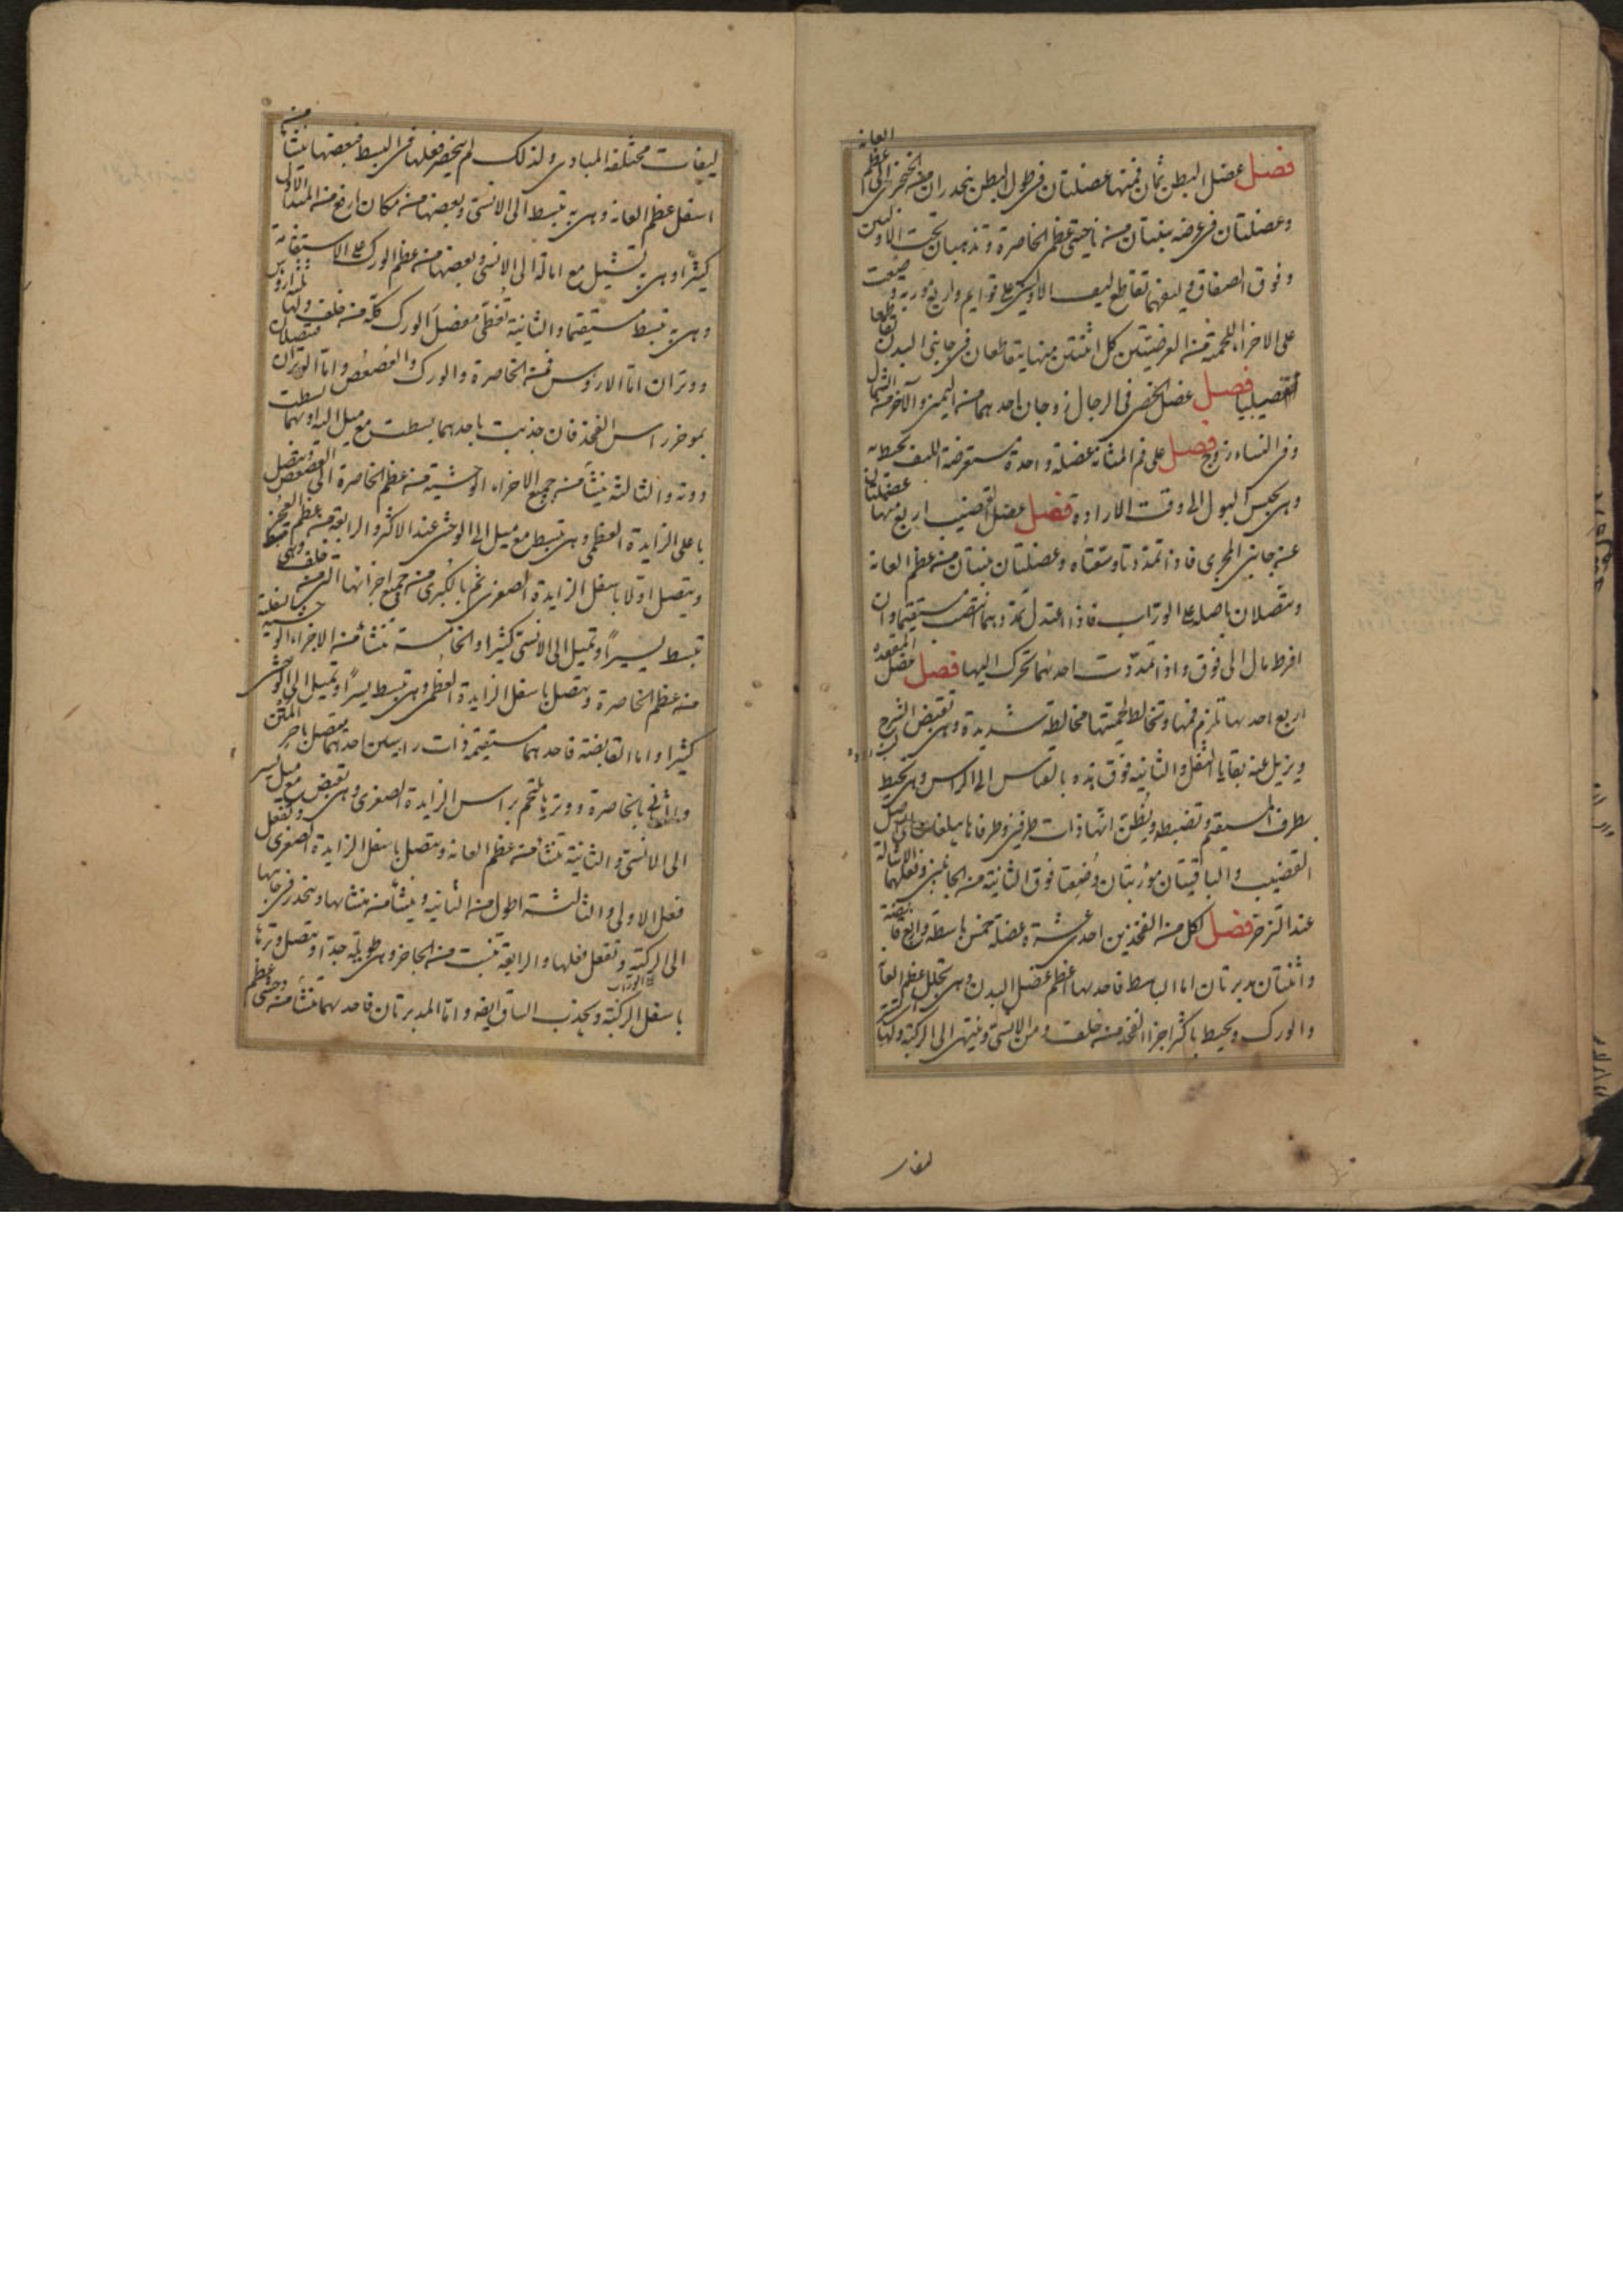 فصل عضل البطن ثمان فمنها عضلتان فى طول البطن ينحدران من الخنجرى الى عظم العانه
وعضلتان فى عرضه ينبتان من ناحيتى عظم الخاصرة وتذهبان تحت الاوليين
وفوق الصفاق وليفهما تقاطع ليف الاوليين على قوايم واربع موربه وضعت
على الاجزاء اللحمية من العرضيتين كل اثنتين منها يتقاطعان فى جانبى البدن تقاطعا
صليبيا فصل عضل الخصى فى الرجال زوجان احدهما من اليمين والآخر من الشمال
وفى النساء زوج فصل على فم المثانة عضلة واحدة مستعرضة الليف تحيط به
وهى تحبس البول الى وقت الارادة فصل عضل القضيب اربع منها عضلتان
عن جانبى المجرى فاذا تمددتا وسعتاه وعضلتان تنبتان من عظم العانه
وتتصلان باصله على الوراب فاذا اعتدل تمددهما انتصب مستقيما وان
افرط مال الى فوق واذا تمددت احدهما تحرك اليها فصل عضل المقعده
اربع احدها تلزم فمها وتخالط لحميتها مخالطة شديدة وهى تقبض الشرج
ويزيل عنه بقايا الثفل والثانيه فوق هذه بالقياس الى الراس وهى تحيط
بطرف المستقيم وتضبطه ويظن انها ذات طرفين وطرفاها يبلغان اصل
القضيب والباقيتان مؤربتان وضعتا فوق الثانية من الجانبين وفعلهما الاشالة
عند التزحر فصل لكل من الفخذين احدى عشرة عضلة خمس باسطة واربع قابضة
واثنتان مديرتان اما الباسط فاحدها اعظم عضل البدن وهى تجلل عظم العانة
والورك وتحيط باكثر اجزا الفخذ من خلف ومن الانسى وينتهى الى الركبة ولها
ليفات مختلفة المبادى ولذلك لم ينحصر فعلها فى البسط فبعضها ينشأ من
اسفل عظم العانه وهى به تبسط الى الانسى وبعضها من مكان ارفع من المبدأ الاول
كثيرا وهى به تشيل مع امالة الى الانسى وبعضها من عظم الورك على الاستقامة
وهى به تبسط مستقيما والثانية تغطى مفصل الورك كله من خلف ولها ثلثة ارؤس
ووتران اما الارؤس فمن الخاصرة والورك والعصعص واما الوتران فيتصلان
بموخر راس الفخذ فان جذبت باحدهما بسطت مع ميل اليه او بهما بسطت
دونه والثالثه ينشأ من جميع الاجزاء الوحشية من عظم الخاصرة الى العصعص ويتصل
باعلى الزايدة العظمى وهى تبسط مع ميل الى الوحشى عند الاكثر والرابعة من عظم العجز
ويتصل اولا باسفل الزايدة الصغرى ثم بالكبرى من جميع اجزائها التى من خلف وهى
تبسط يسيرا وتميل الى الانسى كثيرا والخامسة تنشأ من الاجزاء السفلية الوحشية
من عظم الخاصرة ويتصل باسفل الزايدة العظمى وهى تبسط يسيرا وتميل الى الوحشى
كثيرا واما القابضة فاحدهما مستقيمة ذات راسين احدهما يتصل باخر المتن
والثانى بالخاصرة ووترها يلتحم براس الزايدة الصغرى وهى تقبض مع ميل يسير
الى الانسى والثانية تنشأ من عظم العانه ويتصل باسفل الزايدة الصغرى وتفعل
فعل الاولى والثالثة اطول من الثانيه وينشأ من منشائها وينحدر فى جانبها
الى الركبة وتفعل فعلها والرابعة تنبت من الحاجز وهى طويلة جدا ويتصل وترها
باسفل الركبة ويجذب الساق ايضا واما المديرتان فاحدهما تنشأ من وحشى عظم